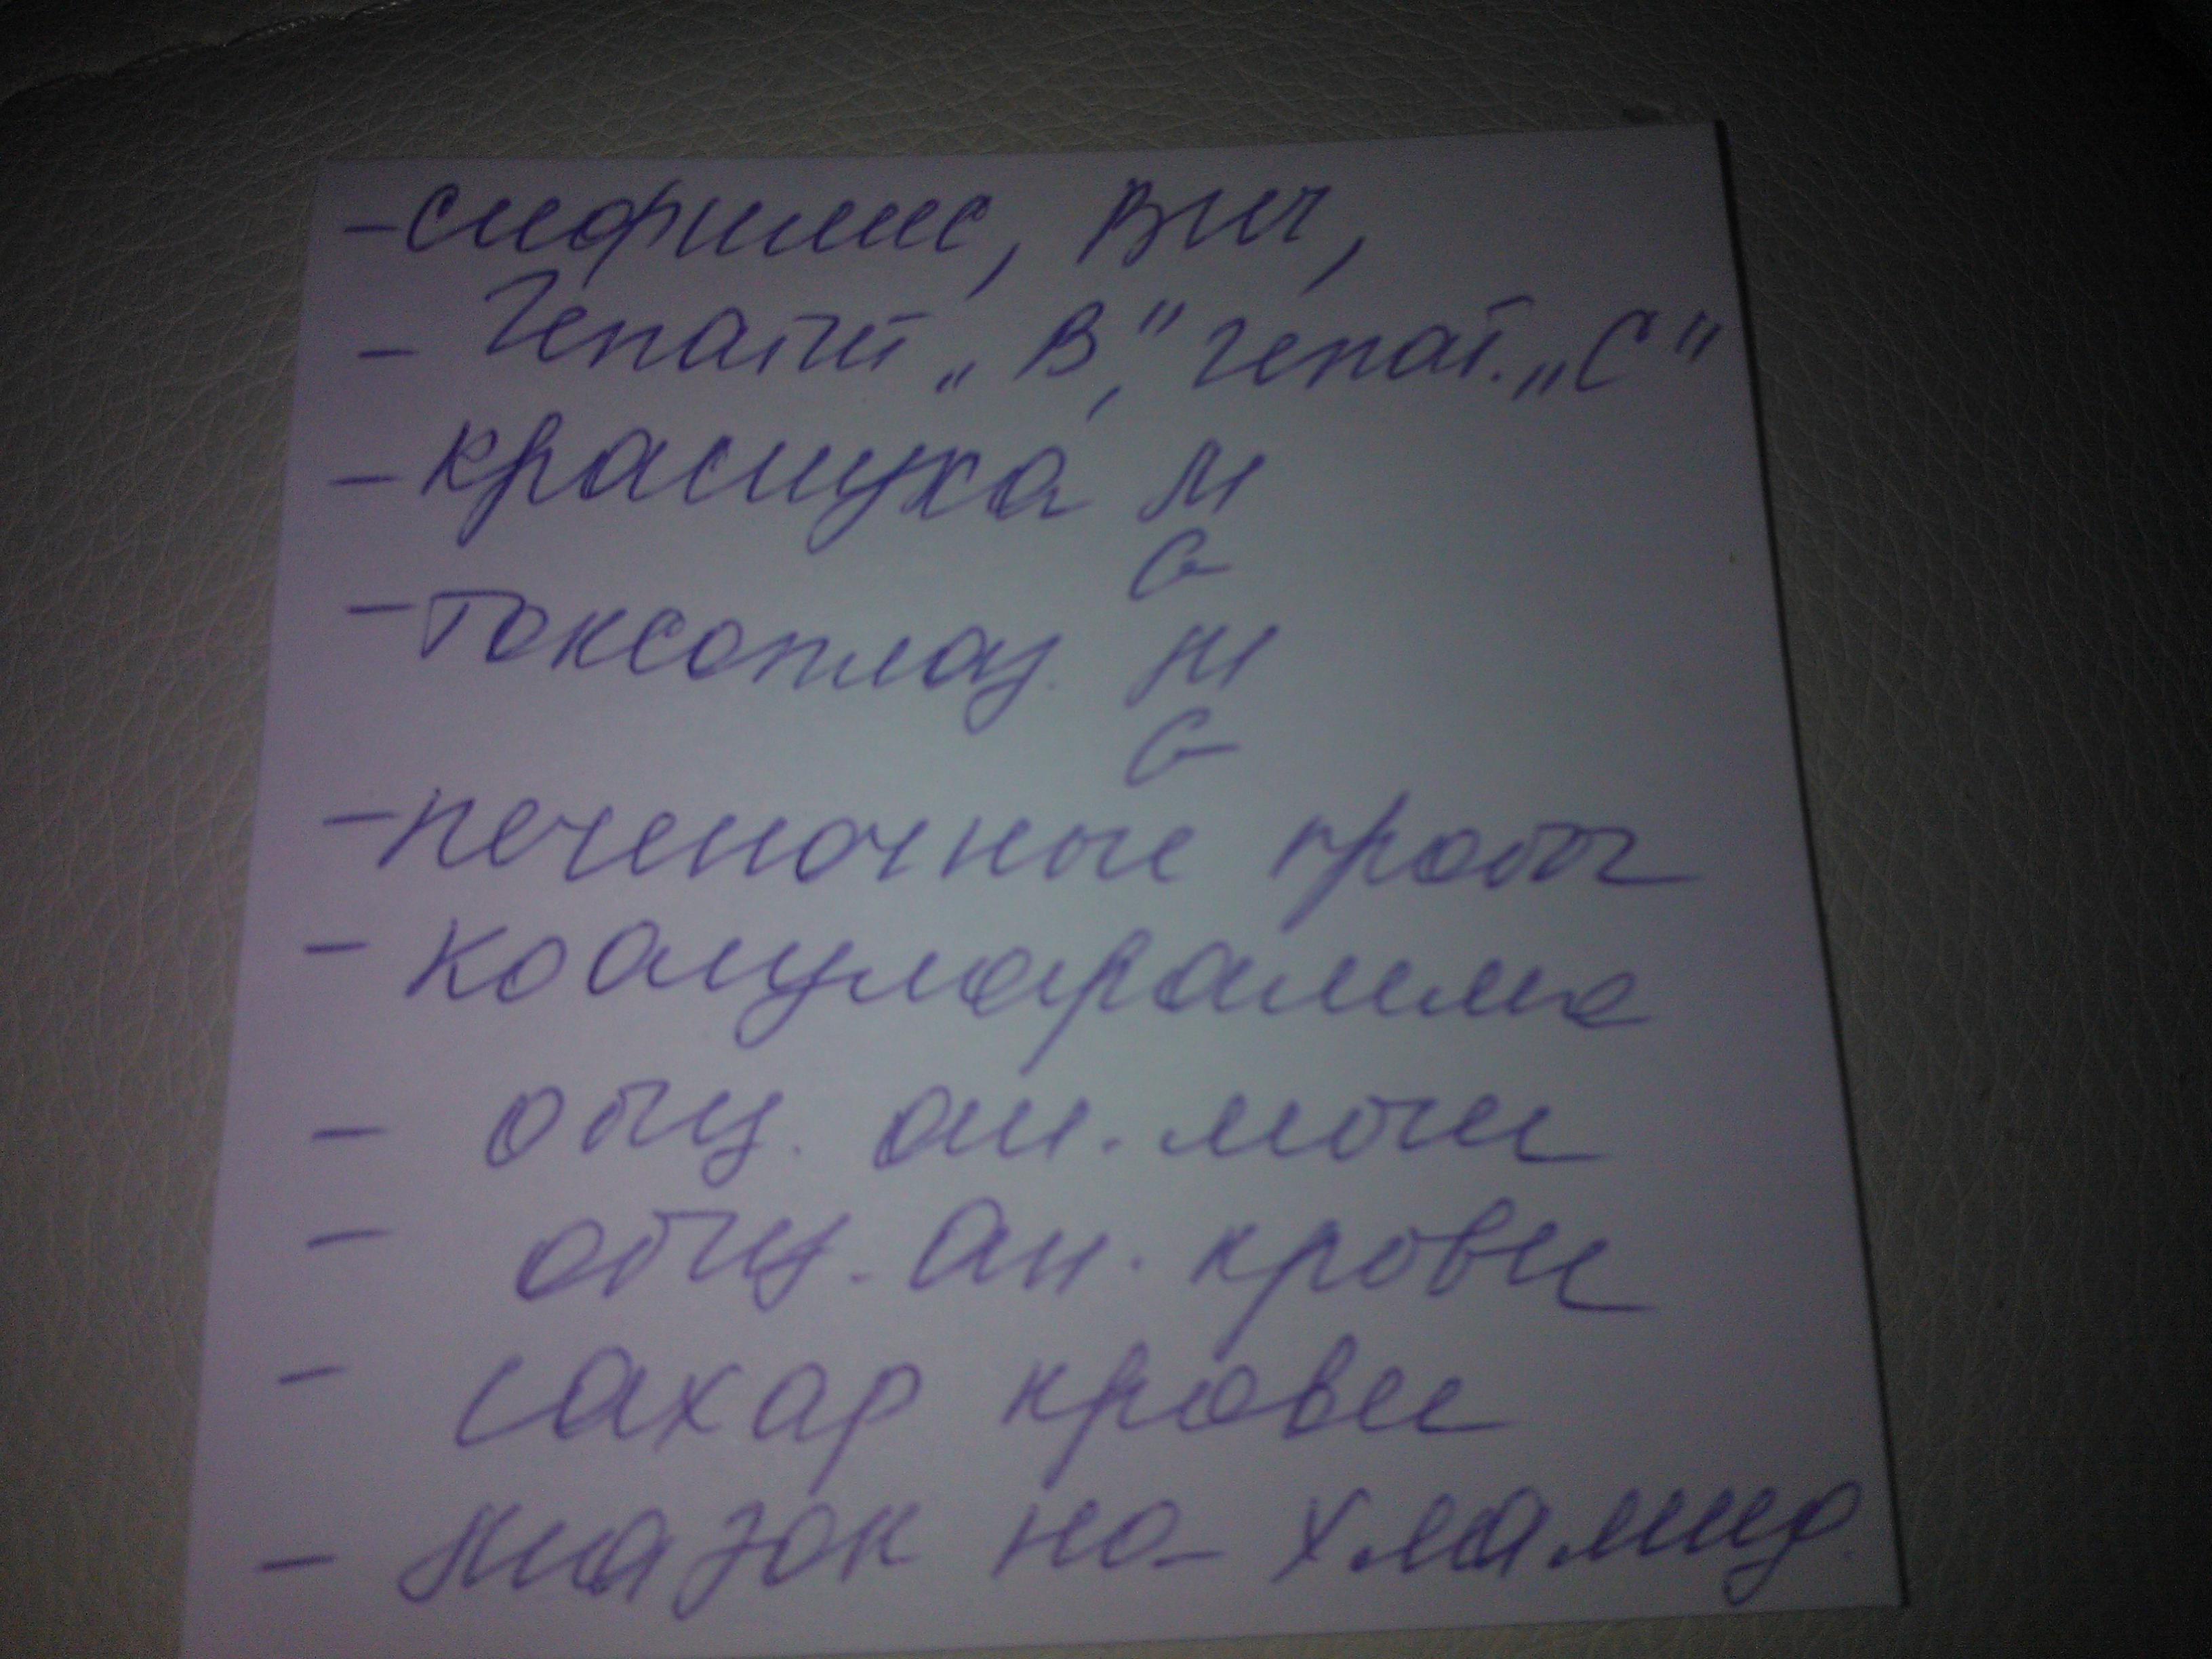 - сифилис, ВИЧ,
- Гепатит „В", гепат. „С"
- краснуха М
G
- токсоплаз. М
G
- печеночные пробы
- коагулограмма
- общ. ан. мочи
- общ. ан. крови
- сахар крови
- мазок на хламид.